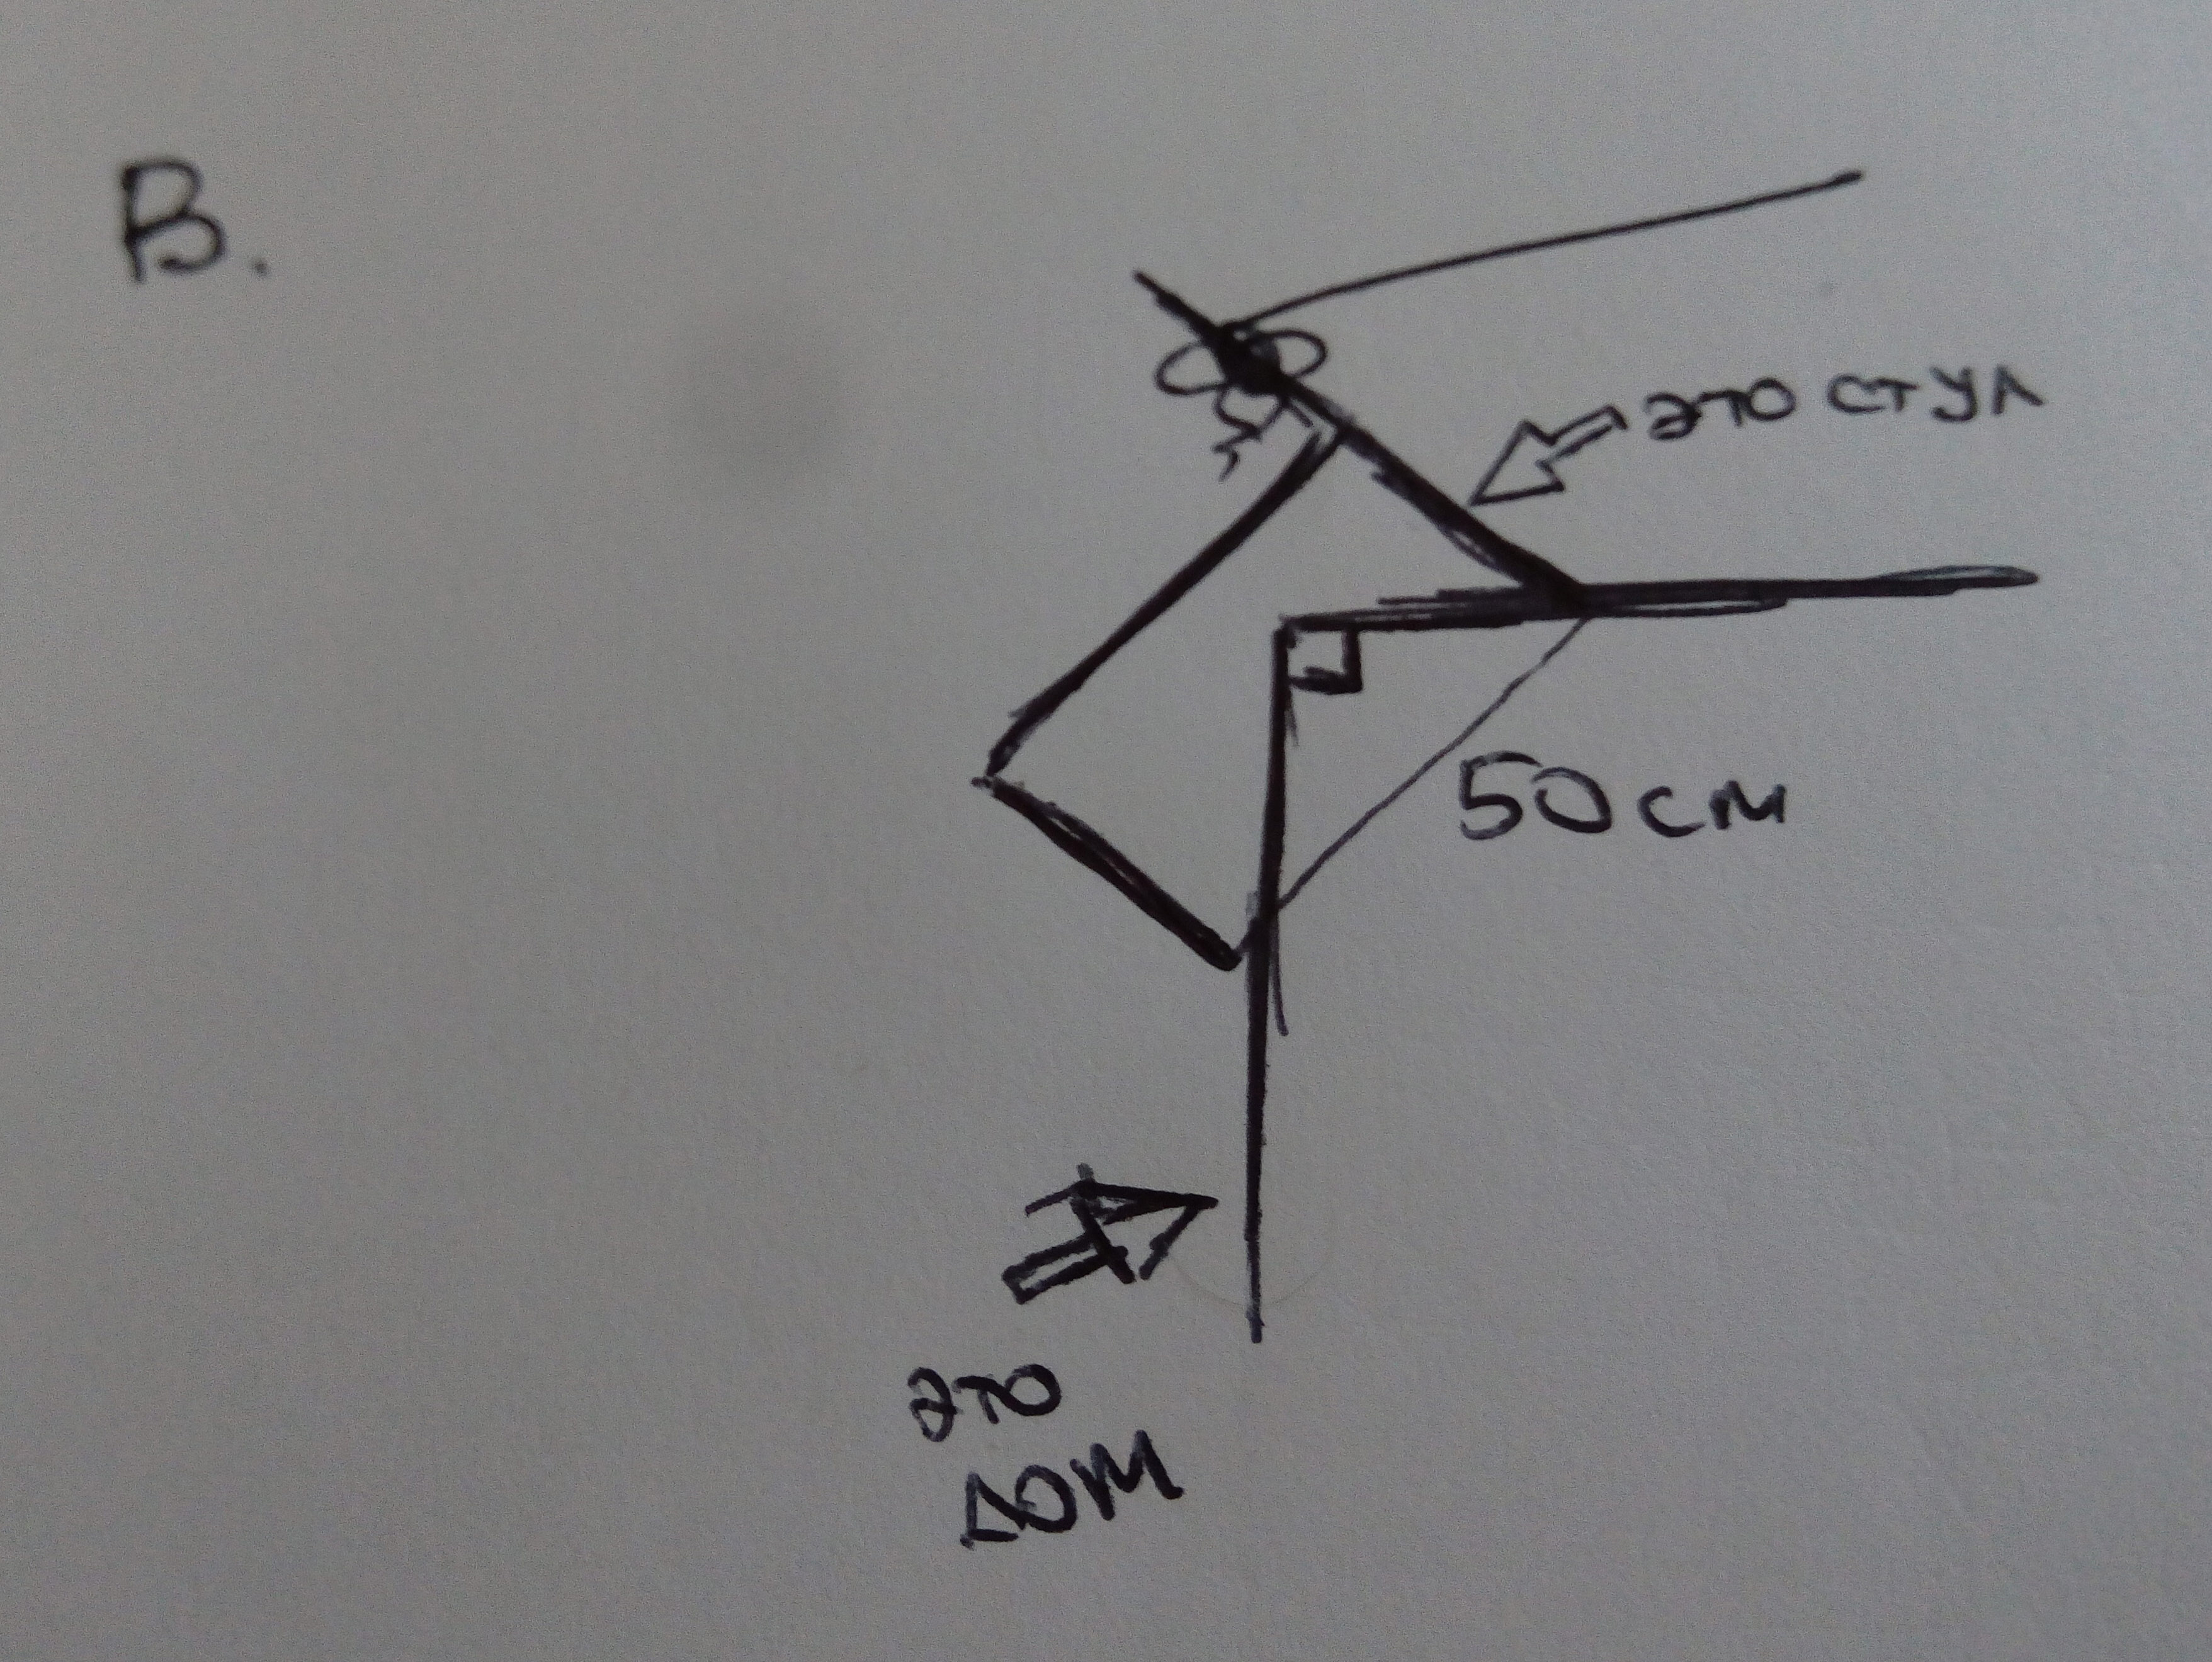 В.
это стул
50 см
это
дом